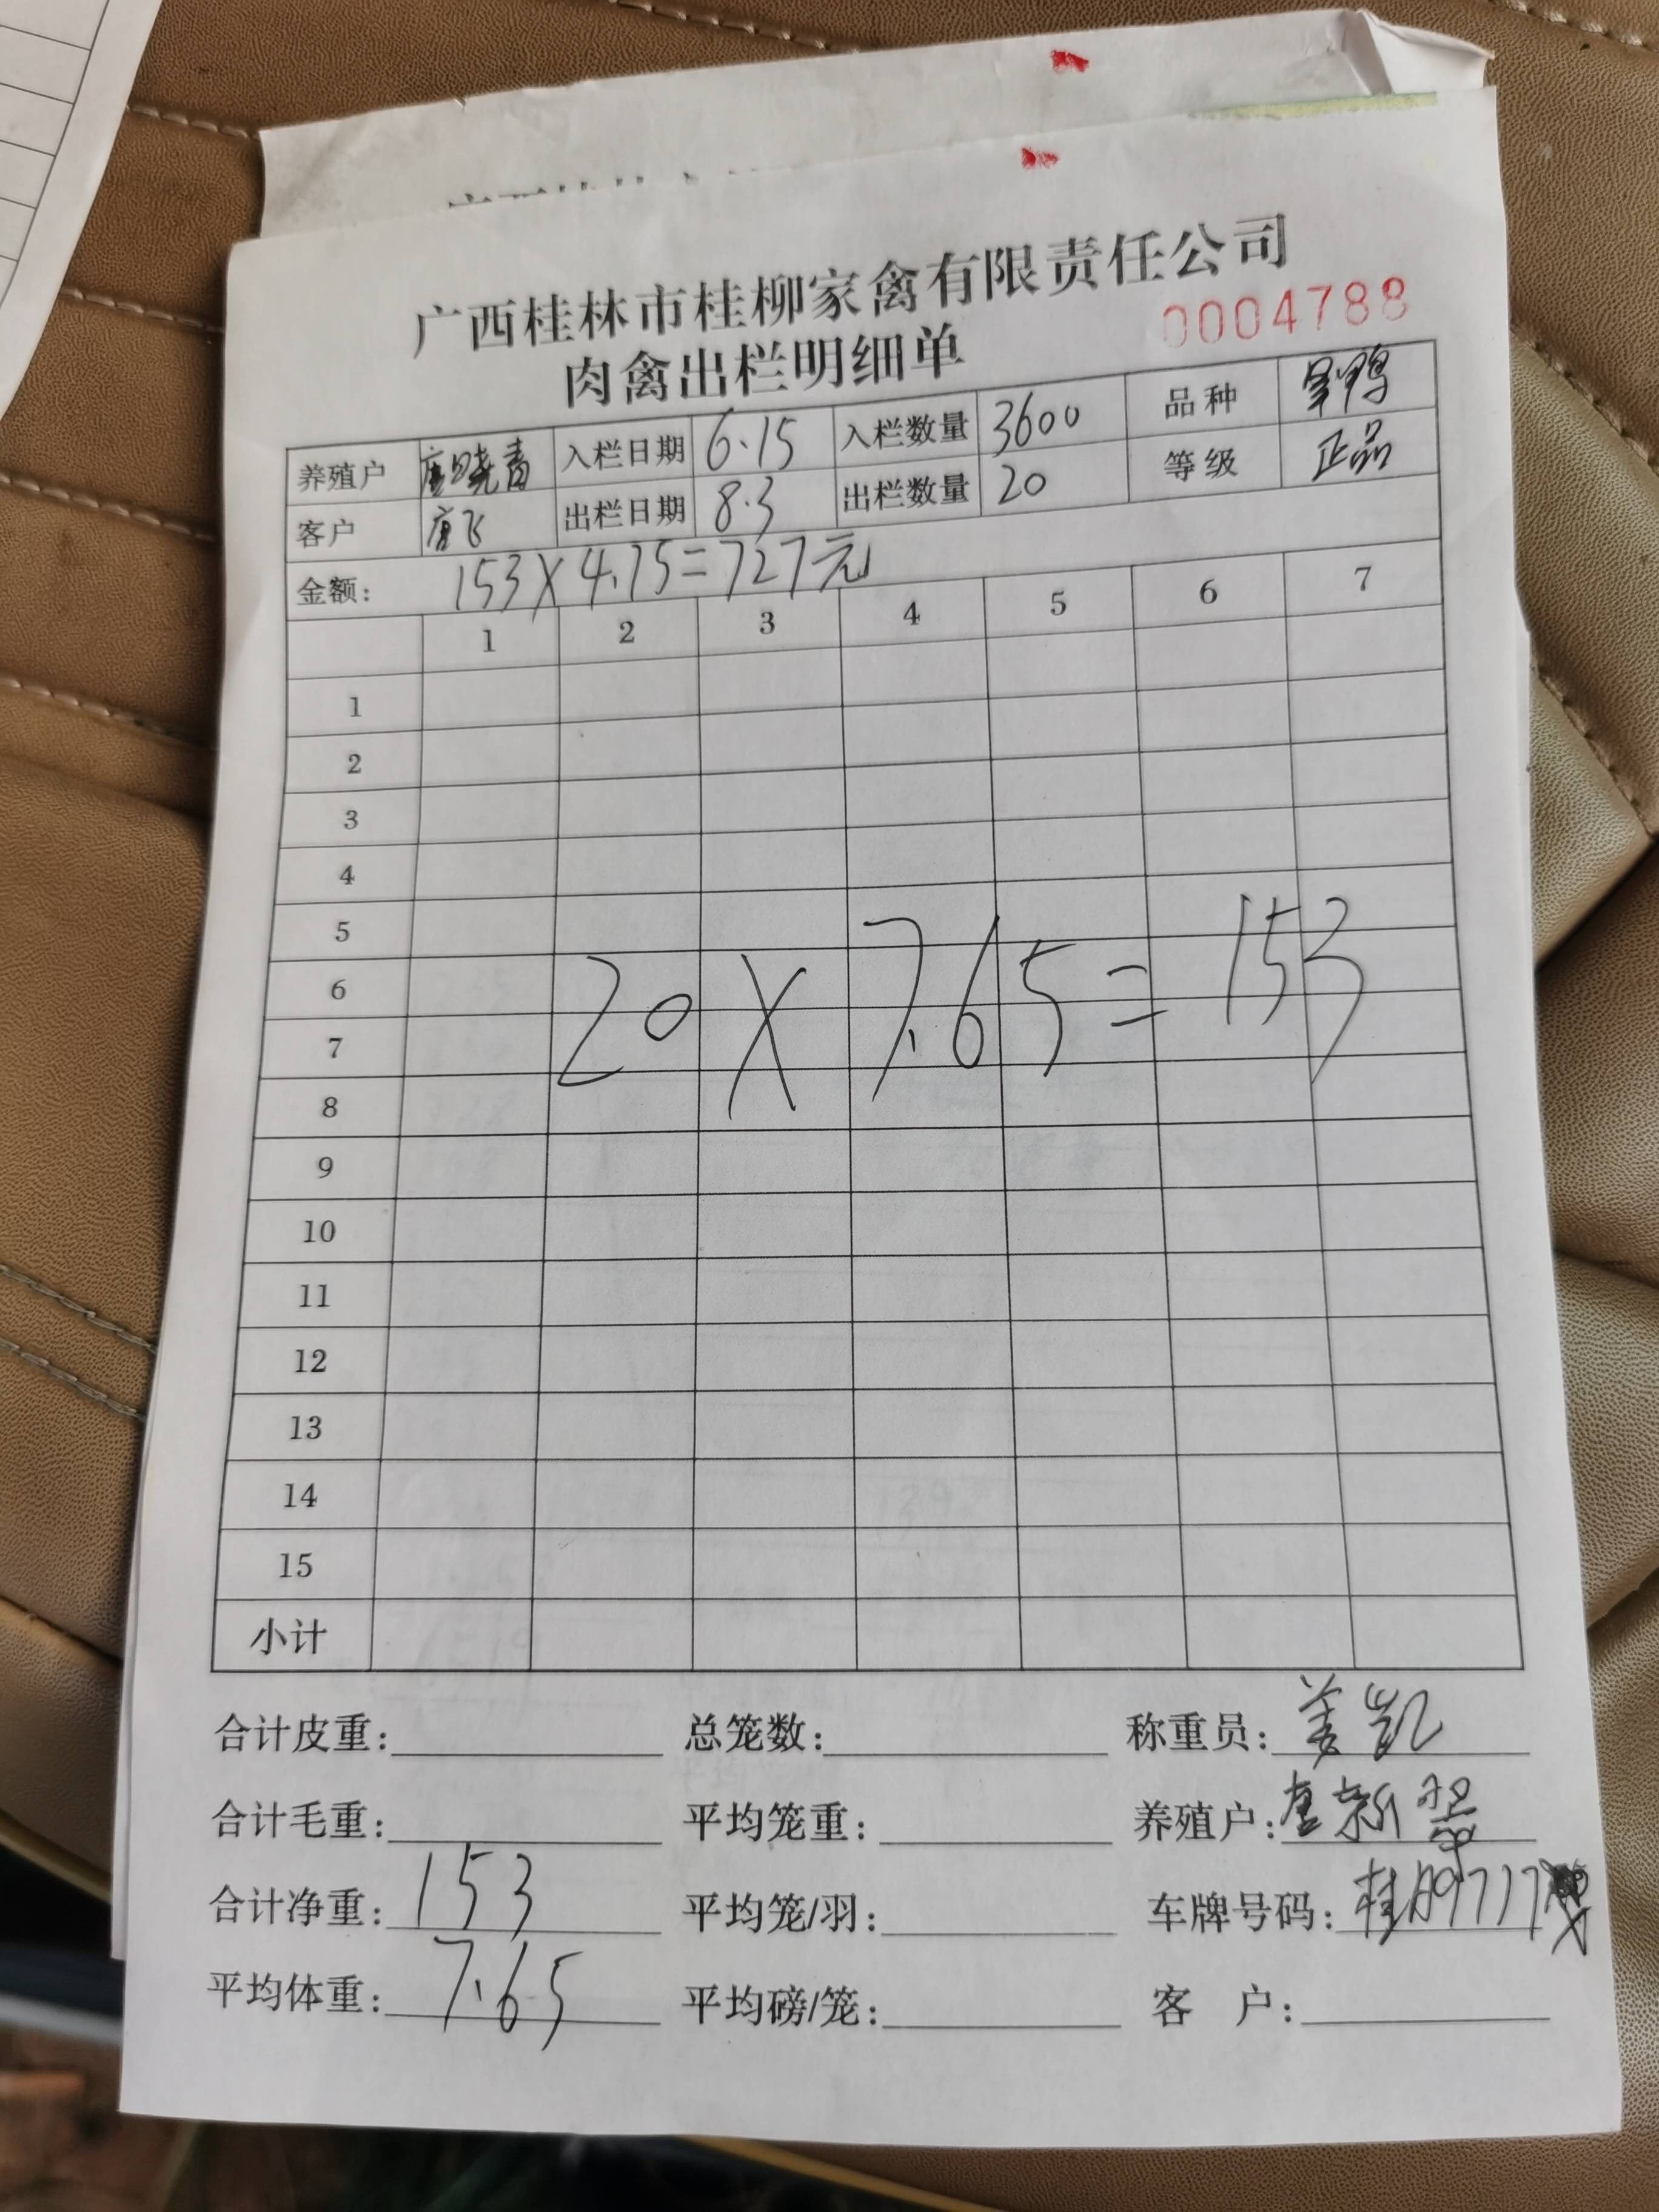 广西桂林市桂柳家禽有限责任公司
肉禽出栏明细单 0004788
养殖户 唐晓青 入栏日期 6.15 入栏数量 3600 品种
客户 唐飞 出栏日期 8.3 出栏数量 20 等级 正品
金额: 153×4.75=727元
1 2 3 4 5 6 7
1
2
3
4
5
6
7
20×7.65=153
8
9
10
11
12
13
14
15
小计
合计皮重: 总笼数: 称重员: 姜凯
合计毛重: 平均笼重: 养殖户: 唐新翠
合计净重: 153 平均笼/羽: 车牌号码:
平均体重: 7.65 平均磅/笼: 客 户: